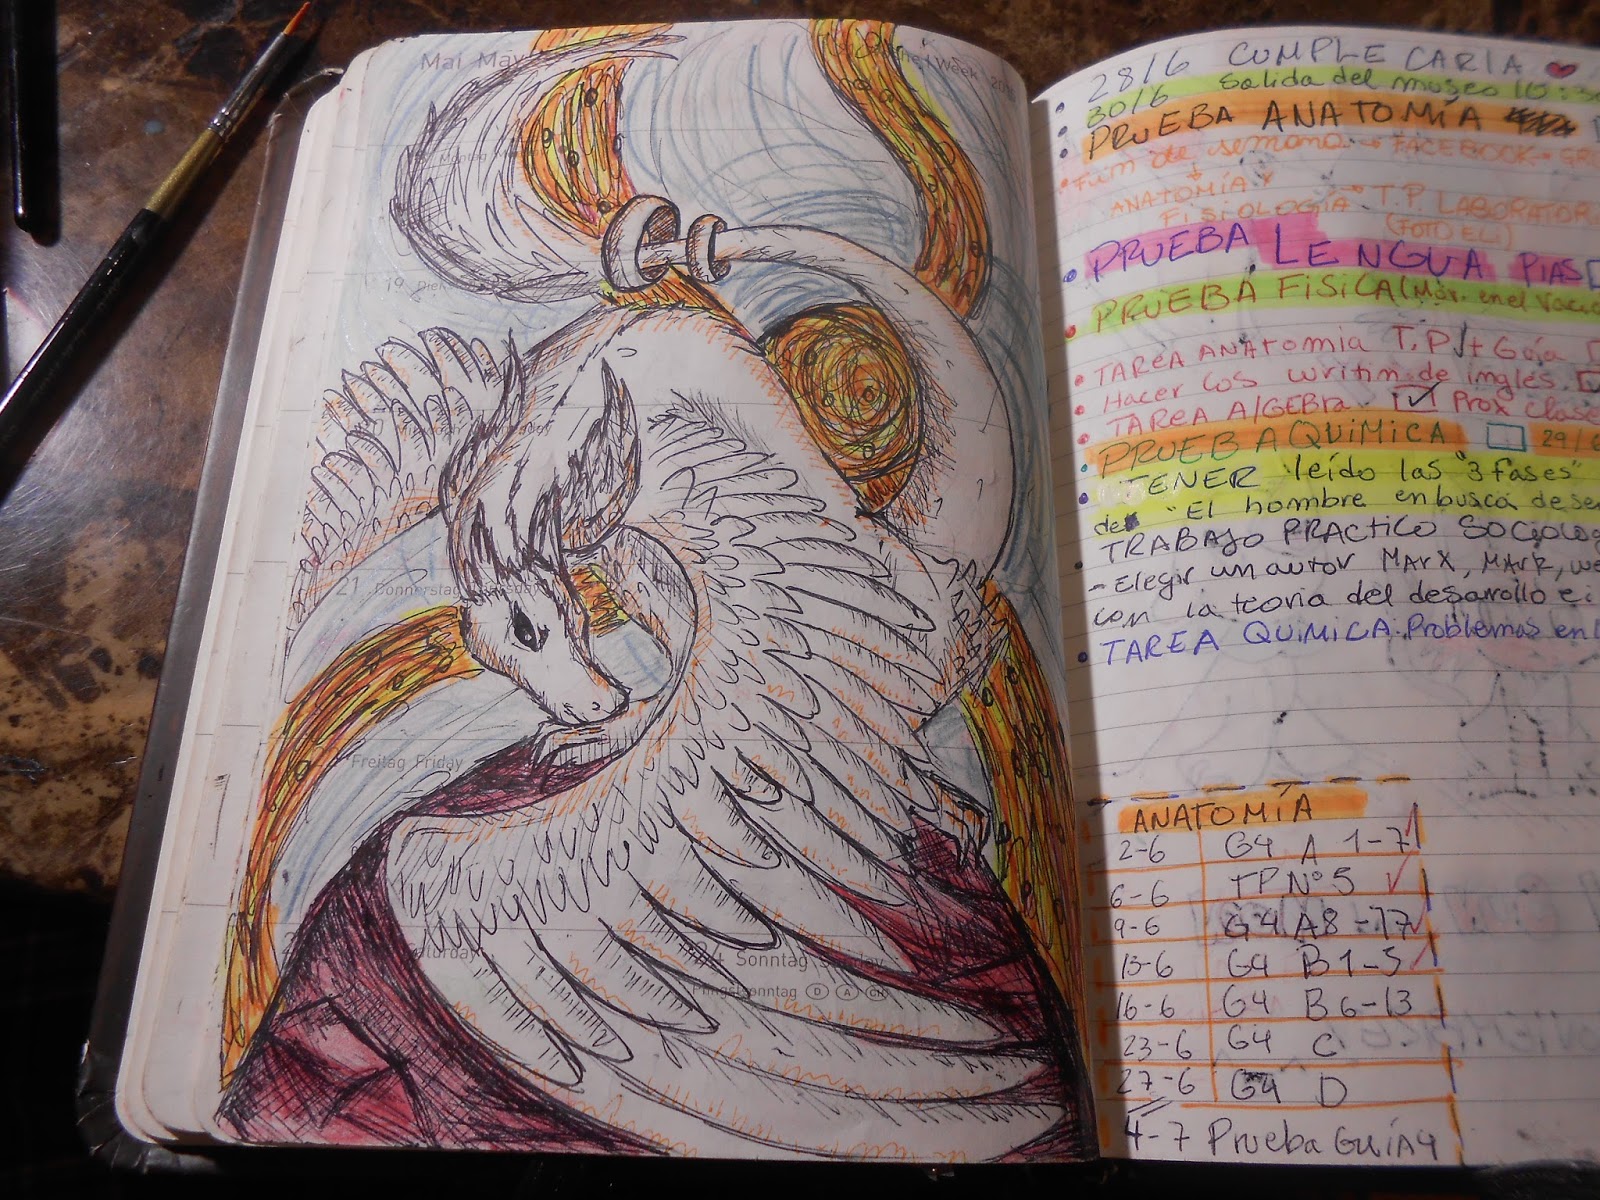 Mai May
Week
19
21 Donnerstag
Freitag Friday
24 Sonntag
Pfingstsonntag D A CH
28/6 CUMPLE CARIA
30/6 Salida del museo
PRUEBA ANATOMÍA
de semana → FACEBOOK →
ANATOMÍA Y
FISIOLOGÍA → T.P LABORATOR
(FOTO ELI)
PRUEBA LENGUA
PRUEBA FISICA (Mov. en el Vacio
TAREA ANATOMIA T.P + Guía
Hacer los writin de inglés
TAREA AlGEBRA Prox clase
PRUEBA QUIMICA 29/6
TENER leído las "3 fases"
de "El hombre en busca de se
TRABAJO PRACTICO SOCIOLOG
- Elegir un autor MARX,
con la teoria del desarrollo e i
TAREA QUIMICA. Problemas en l
ANATOMÍA
2-6 G4 A 1-7
6-6 TP Nº 5
9-6 G4 A8-17
13-6 G4 B 1-5
16-6 G4 B 6-13
23-6 G4 C
27-6 G4 D
4-7 Prueba GUÍA 4